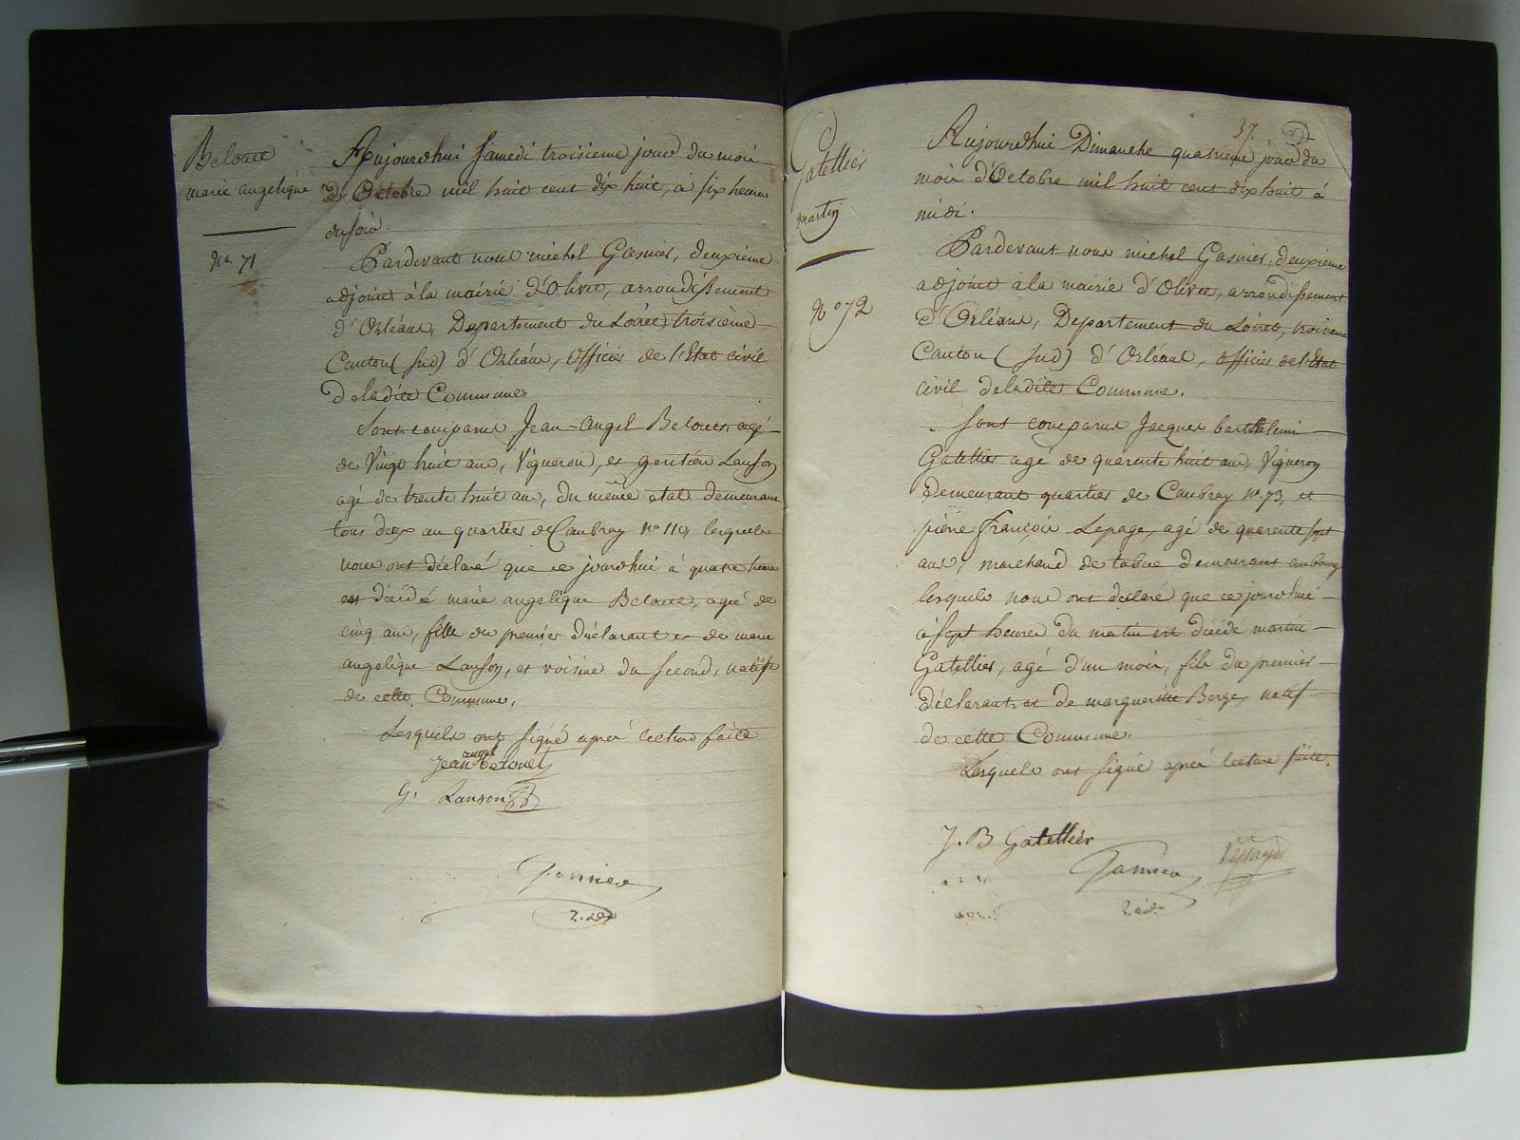 Belouet
marie angelique
No. 71
Aujourdhui Samedi troisieme jour du mois
d'Octobre mil huit cent dix huit, à six heures
du soir.
Pardevant nous michel Gasnier, deuxieme
adjoint à la mairie d'Olivet, arrondissement
d'Orléans, Departement du Loiret, troisième
Canton (sud) d'Orléans, officier de l'Etat civil
de ladite Commune
Sont comparus Jean-angel Belouet, agé
de Vingt huit ans, Vigneron, et gentien Lanson
agé de trente huit ans, du même etat demeurant
tous deux au quartier de Caubray No 119 lesquels
nous ont déclaré que ce jourdhui à quatre heures
est décédé marie angelique Belouet, agée de
cinq ans, fille du premier déclarant et de marie
angelique Lanson, et voisine du second, native
de cette Commune.
Lesquels ont signé après lecture faite
angel
Jean Belouet
G. Lanson
Gasnier
2. adt
37.
Gatellier
martin
No 72
Aujourdhui Dimanche quatrieme jour du
mois d'Octobre mil huit cent dix huit à
midi.
Pardevant nous michel Gasnier, deuxieme
adjoint à la mairie d'Olivet, arrondissement
d'Orléans, Departement du Loiret, troisieme
Canton (sud) d'Orléans, officier de l'Etat
civil de ladite Commune.
Sont comparus Jacques barthelemi
Gatellier agé de quarente huit ans, Vigneron
demeurant quartier de Caubray No. 73, et
pierre françois Lepage, agé de quarente sept
ans, marchand de tabac demeurant au bourg
lesquels nous ont déclaré que ce jourdhui
à sept heures du matin est décédé martin
Gatellier, agé d'un mois, fils du premier
déclarant et de marguerite Berge, natif
de cette Commune.
Lesquels ont signé après lecture faite.
J. B Gatellier
Gasnier
Lepage
2 adt.